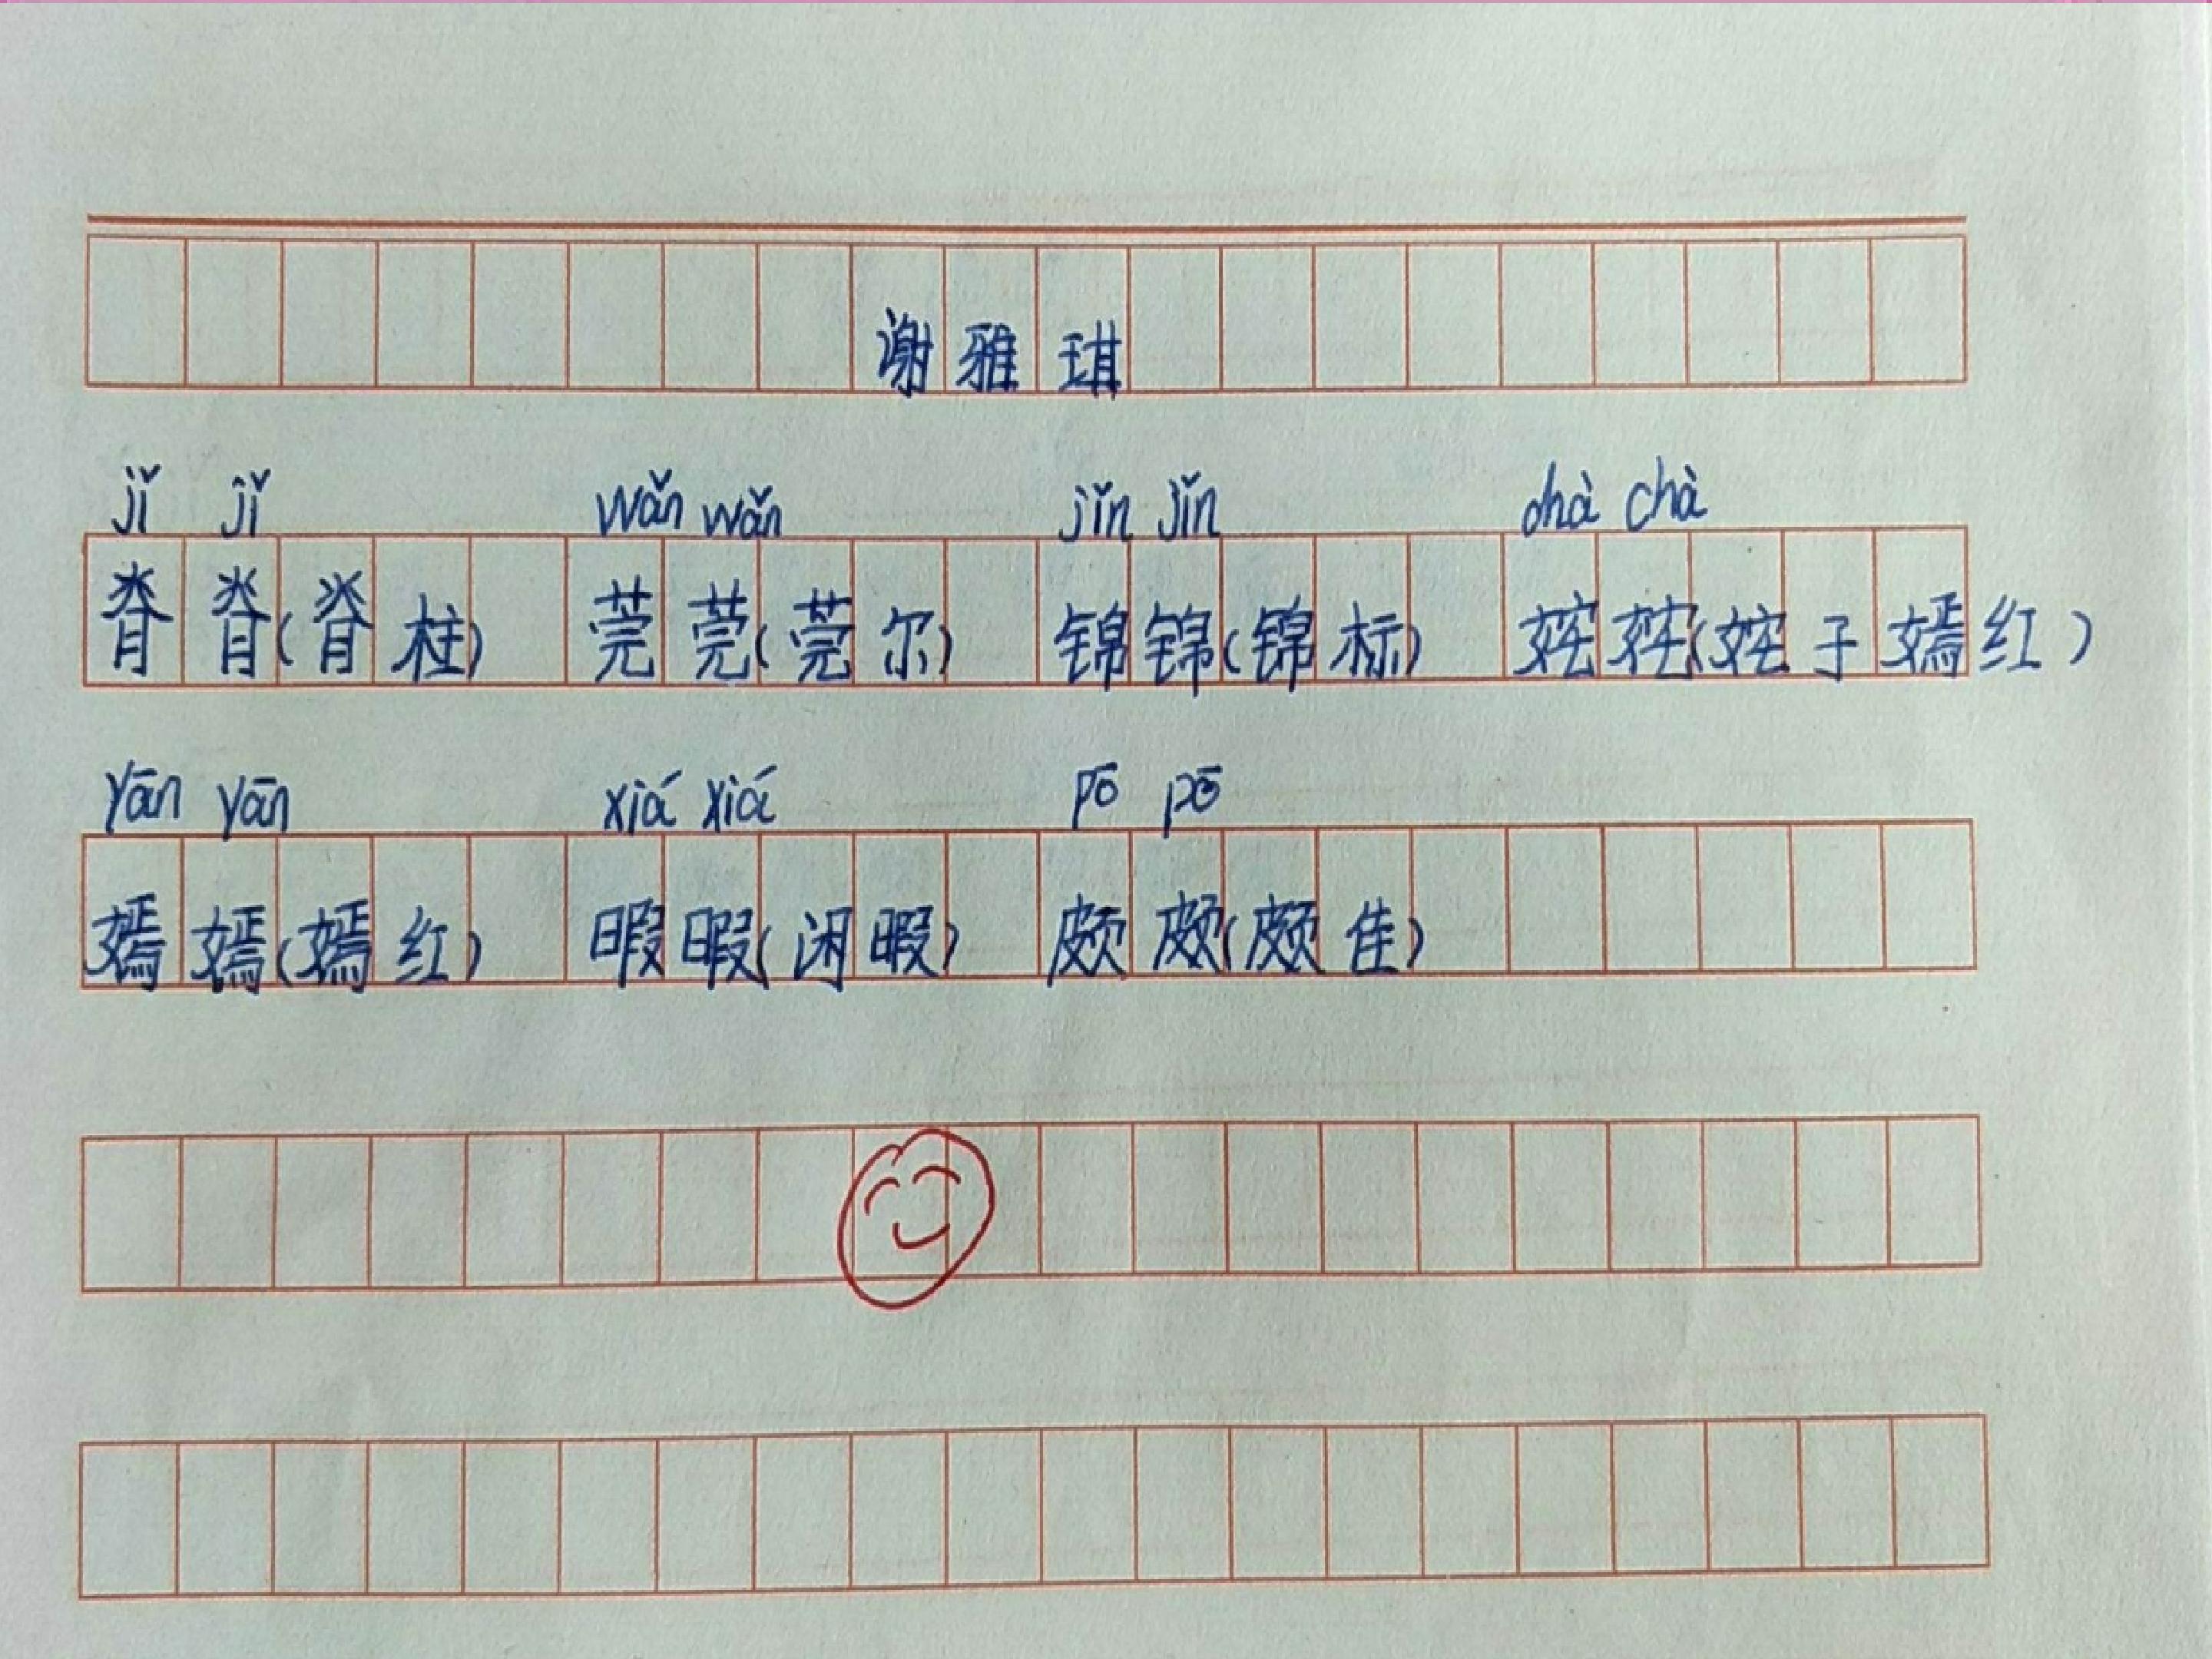 谢雅琪
jǐ jǐ wǎn wǎn jǐn jǐn chà chà
脊脊(脊柱) 莞莞(莞尔) 锦锦(锦标) 姹姹(姹子嫣红)
yān yān xiá xiá pō pō
嫣嫣(嫣红) 暇暇(闲暇) 颇颇(颇佳)